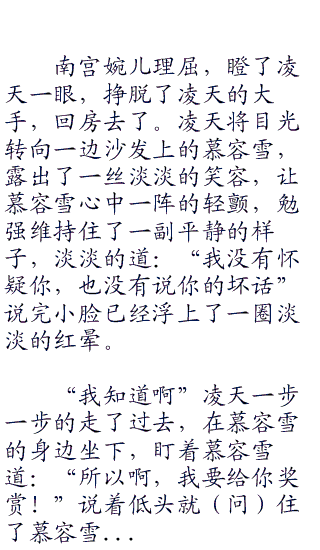 南宫婉儿理屈，瞪了凌
天一眼，挣脱了凌天的大
手，回房去了。凌天将目光
转向一边沙发上的慕容雪，
露出了一丝淡淡的笑容，让
慕容雪心中一阵的轻颤，勉
强维持住了一副平静的样
子，淡淡的道：“我没有怀
疑你，也没有说你的坏话”
说完小脸已经浮上了一圈淡
淡的红晕。
“我知道啊”凌天一步
一步的走了过去，在慕容雪
的身边坐下，盯着慕容雪
道：“所以啊，我要给你奖
赏！”说着低头就（问）住
了慕容雪...